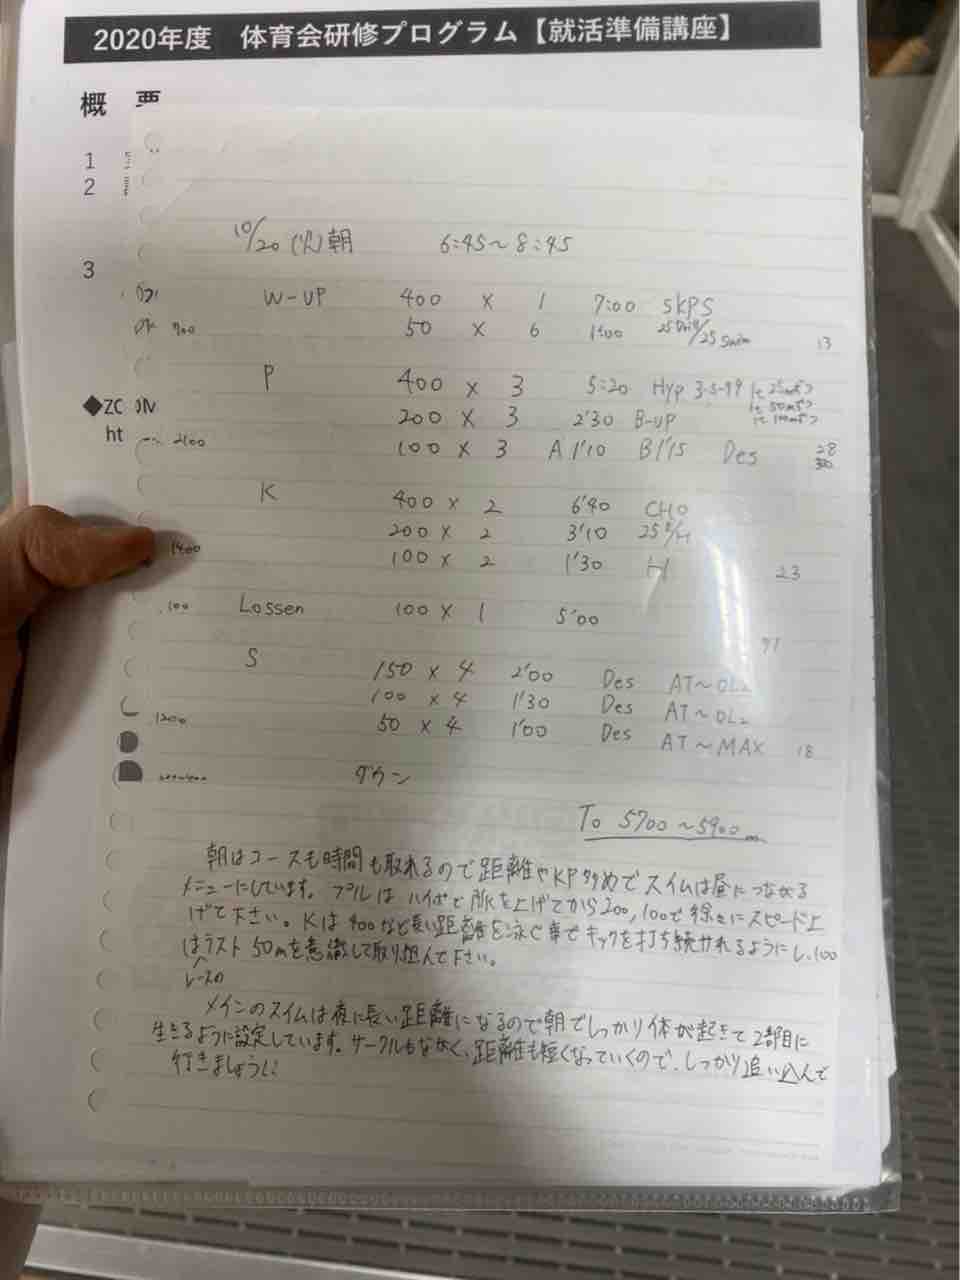 2020年度 体育会研修プログラム【就活準備講座】
概 要
1
2
3
◆ZO
ht
10/20 (火)朝 6:45～8:45
W-UP 400 × 1 7:00 SKPS
700 50 × 6 1:00 25Drill/25 Swim 13
P 400 × 3 5:20 Hyp 3-5-7-9 1t 25mずつ
1t 50mずつ
1t 100mずつ
200 × 3 2'30 B-UP
2100 100 × 3 A 1'10 B 1'15 Des 28
30
K 400 × 2 6'40 CHO
200 × 2 3'10 25 E/H
1400 100 × 2 1'30 H 23
100 Lossen 100 × 1 5'00
71
S 150 × 4 2'00 Des AT～OL2
100 × 4 1'30 Des AT～OL2
1200 50 × 4 1'00 Des AT～MAX 18
200~400 ダウン
To 5700～5900m
朝はコースも時間も取れるので距離やKP多めでスイムは昼につながる
メニューにしています。プルはハイポで脈を上げてから200,100で徐々にスピード上
げて下さい。Kは400など長い距離を泳ぐ事でキックを打ち続けれるようにし、100
はラスト50mを意識して取り組んで下さい。
レースの
メインのスイムは夜に長い距離になるので朝でしっかり体が起きて2部目に
生きるように設定しています。サークルもなく、距離も短くなっていくので、しっかり追い込んで
行きましょう!